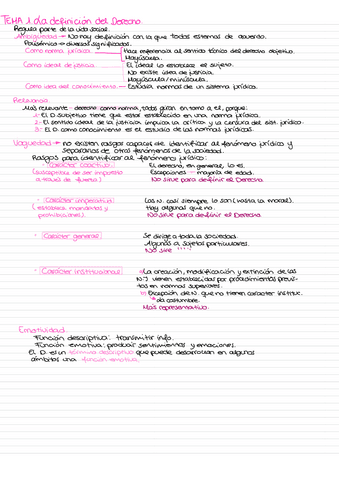 TEMA 1. La definición del Derecho.
Regula parte de la vida social.
Ambigüedad → No hay definición con la que todas estemos de acuerdo.
Polisémico → diversos significados.
Como norma jurídica
Hace referencia al sentido técnico del derecho objetivo.
Mayúscula.
Como ideal de justicia
El ideal lo establece el sujeto.
No existe idea de justicia.
Mayúscula/minúscula.
Como idea del conocimiento → Estudia normal de un sistema jurídico.
Relaciona
Más relevante → derecho como norma, todas giran en torno a él, porque:
1- El D. subjetivo tiene que estar establecido en una norma jurídica.
2- El sentido ideal de la justicia implica la crítica y la censura del sist. jurídico.
3- El D. como conocimiento es el estudio de las normas jurídicas.
Vaguedad → no existen rasgos capaces de identificar al fenómeno jurídico y
separarlos de otros fenómenos de la sociedad.
Rasgos para identificar al fenómeno jurídico:
· Carácter coactivo
El derecho, en general, lo es.
(susceptible de ser impuesto
Excepciones → mayoría de edad.
a través de fuerza)
No sirve para definir el Derecho
· Carácter imperativo
Las N. casi siempre lo son (hasta la moral).
(establece mandatos y
Hay algunas que no.
prohibiciones)
No sirve para definir el Derecho
· Carácter general
Se dirige a toda la sociedad.
Algunas a sujetos particulares.
No sire " "
· Carácter institucional
a) La creación, modificación y extinción de las
N. vienen establecidas por procedimientos previs-
tos en normas superiores.
b) Excepción de N. que no tienen carácter instituc.
la costumbre.
Más representativo.
Emotividad
Función descriptiva: transmitir info.
Función emotiva: producir sentimientos y emociones.
El D. es un término descriptivo que puede desarrollar en algunos
ámbitos una función emotiva.